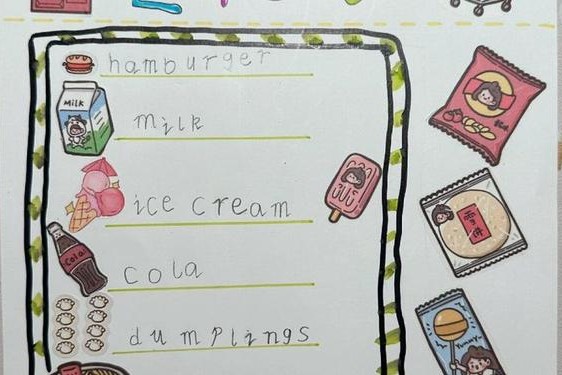 hamburger
MiLK
milk
ice cream
Cola
cola
dumplings